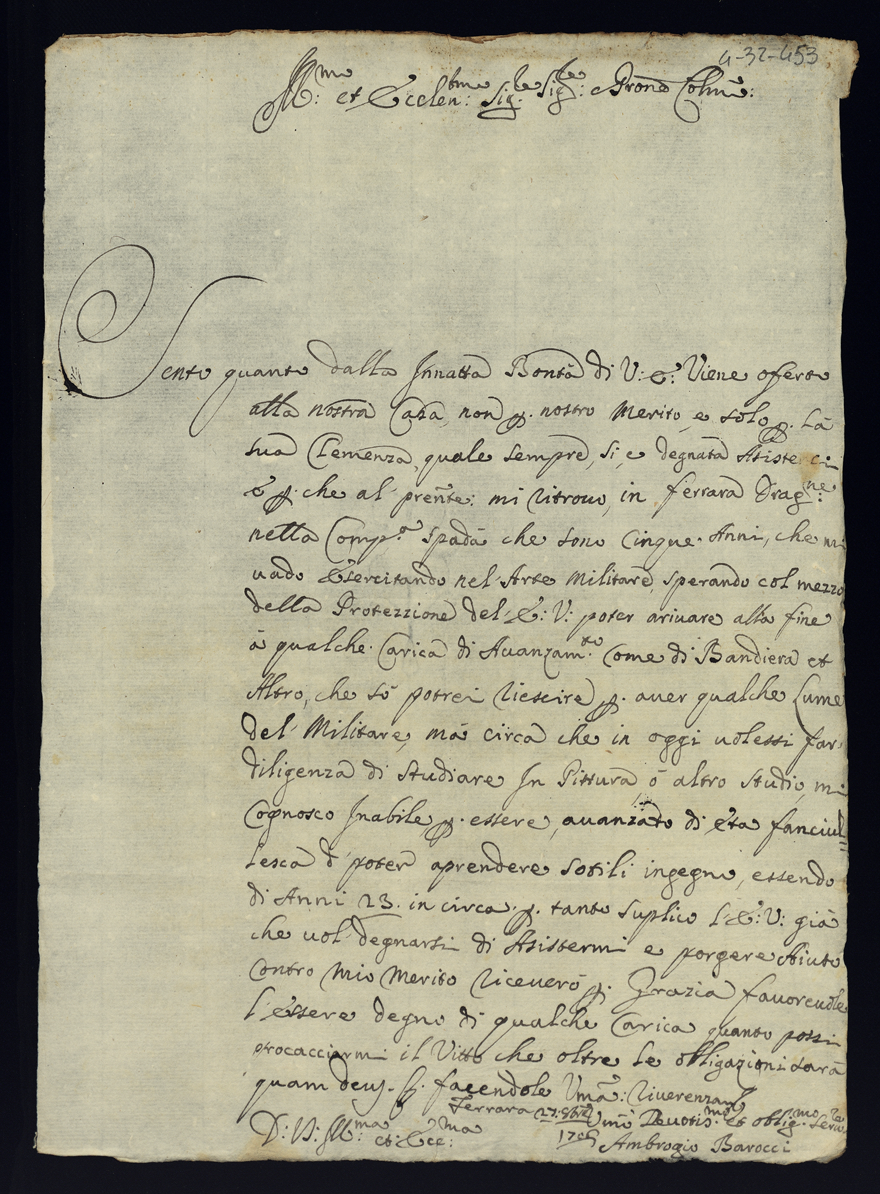 4-32-453
Ill:mo et Ecclen:tmo Sig:re Sig:re Prone Colmo:
Sento quanto dalla Innatta Bontà di V: E: Viene oferto
alla nostra Casa, non p. nostro Merito, e solo p. La
sua Clemenza, quale sempre, si, e degnata Asisterci
e p. che al prente: mi ritrovo, in ferrara Drag:ne
nella Comp.a Spada che sono Cinque Anni, che mi
vado Esercitando nel Arte Militare, sperando col mezzo
della Protezzione del E: V: poter arivare alla fine
à qualche Carica di Avanzam.to Come di Bandiera et
Altro, che sò potrei riescire p. aver qualche Lume
del Militare, mà circa che in oggi volessi far
diligenza di Studiare In Pittura, ò altro Studio, mi
Cognosco Inabile, p. essere, avanzato di età fanciul=
lesca d poter aprendere sotili ingegni, essendo
di Anni 23. in circa p. tanto suplico l'E: V: già
che vol degnarsi di Asistermi e porgere Aiuto
Contro Mio Merito riceverò p. Grazia favorevole
l'Essere degno di qualche Carica quanto possi
procacciarmi il Vitto che oltre le obligazioni sarà
facendole Uma: riverenza
Ferrara 27: 8bre
D: V: Ill:ma et: Ecc:ma
Umo Devotis:mo et oblig:mo Serv:re
Ambrogio Barocci